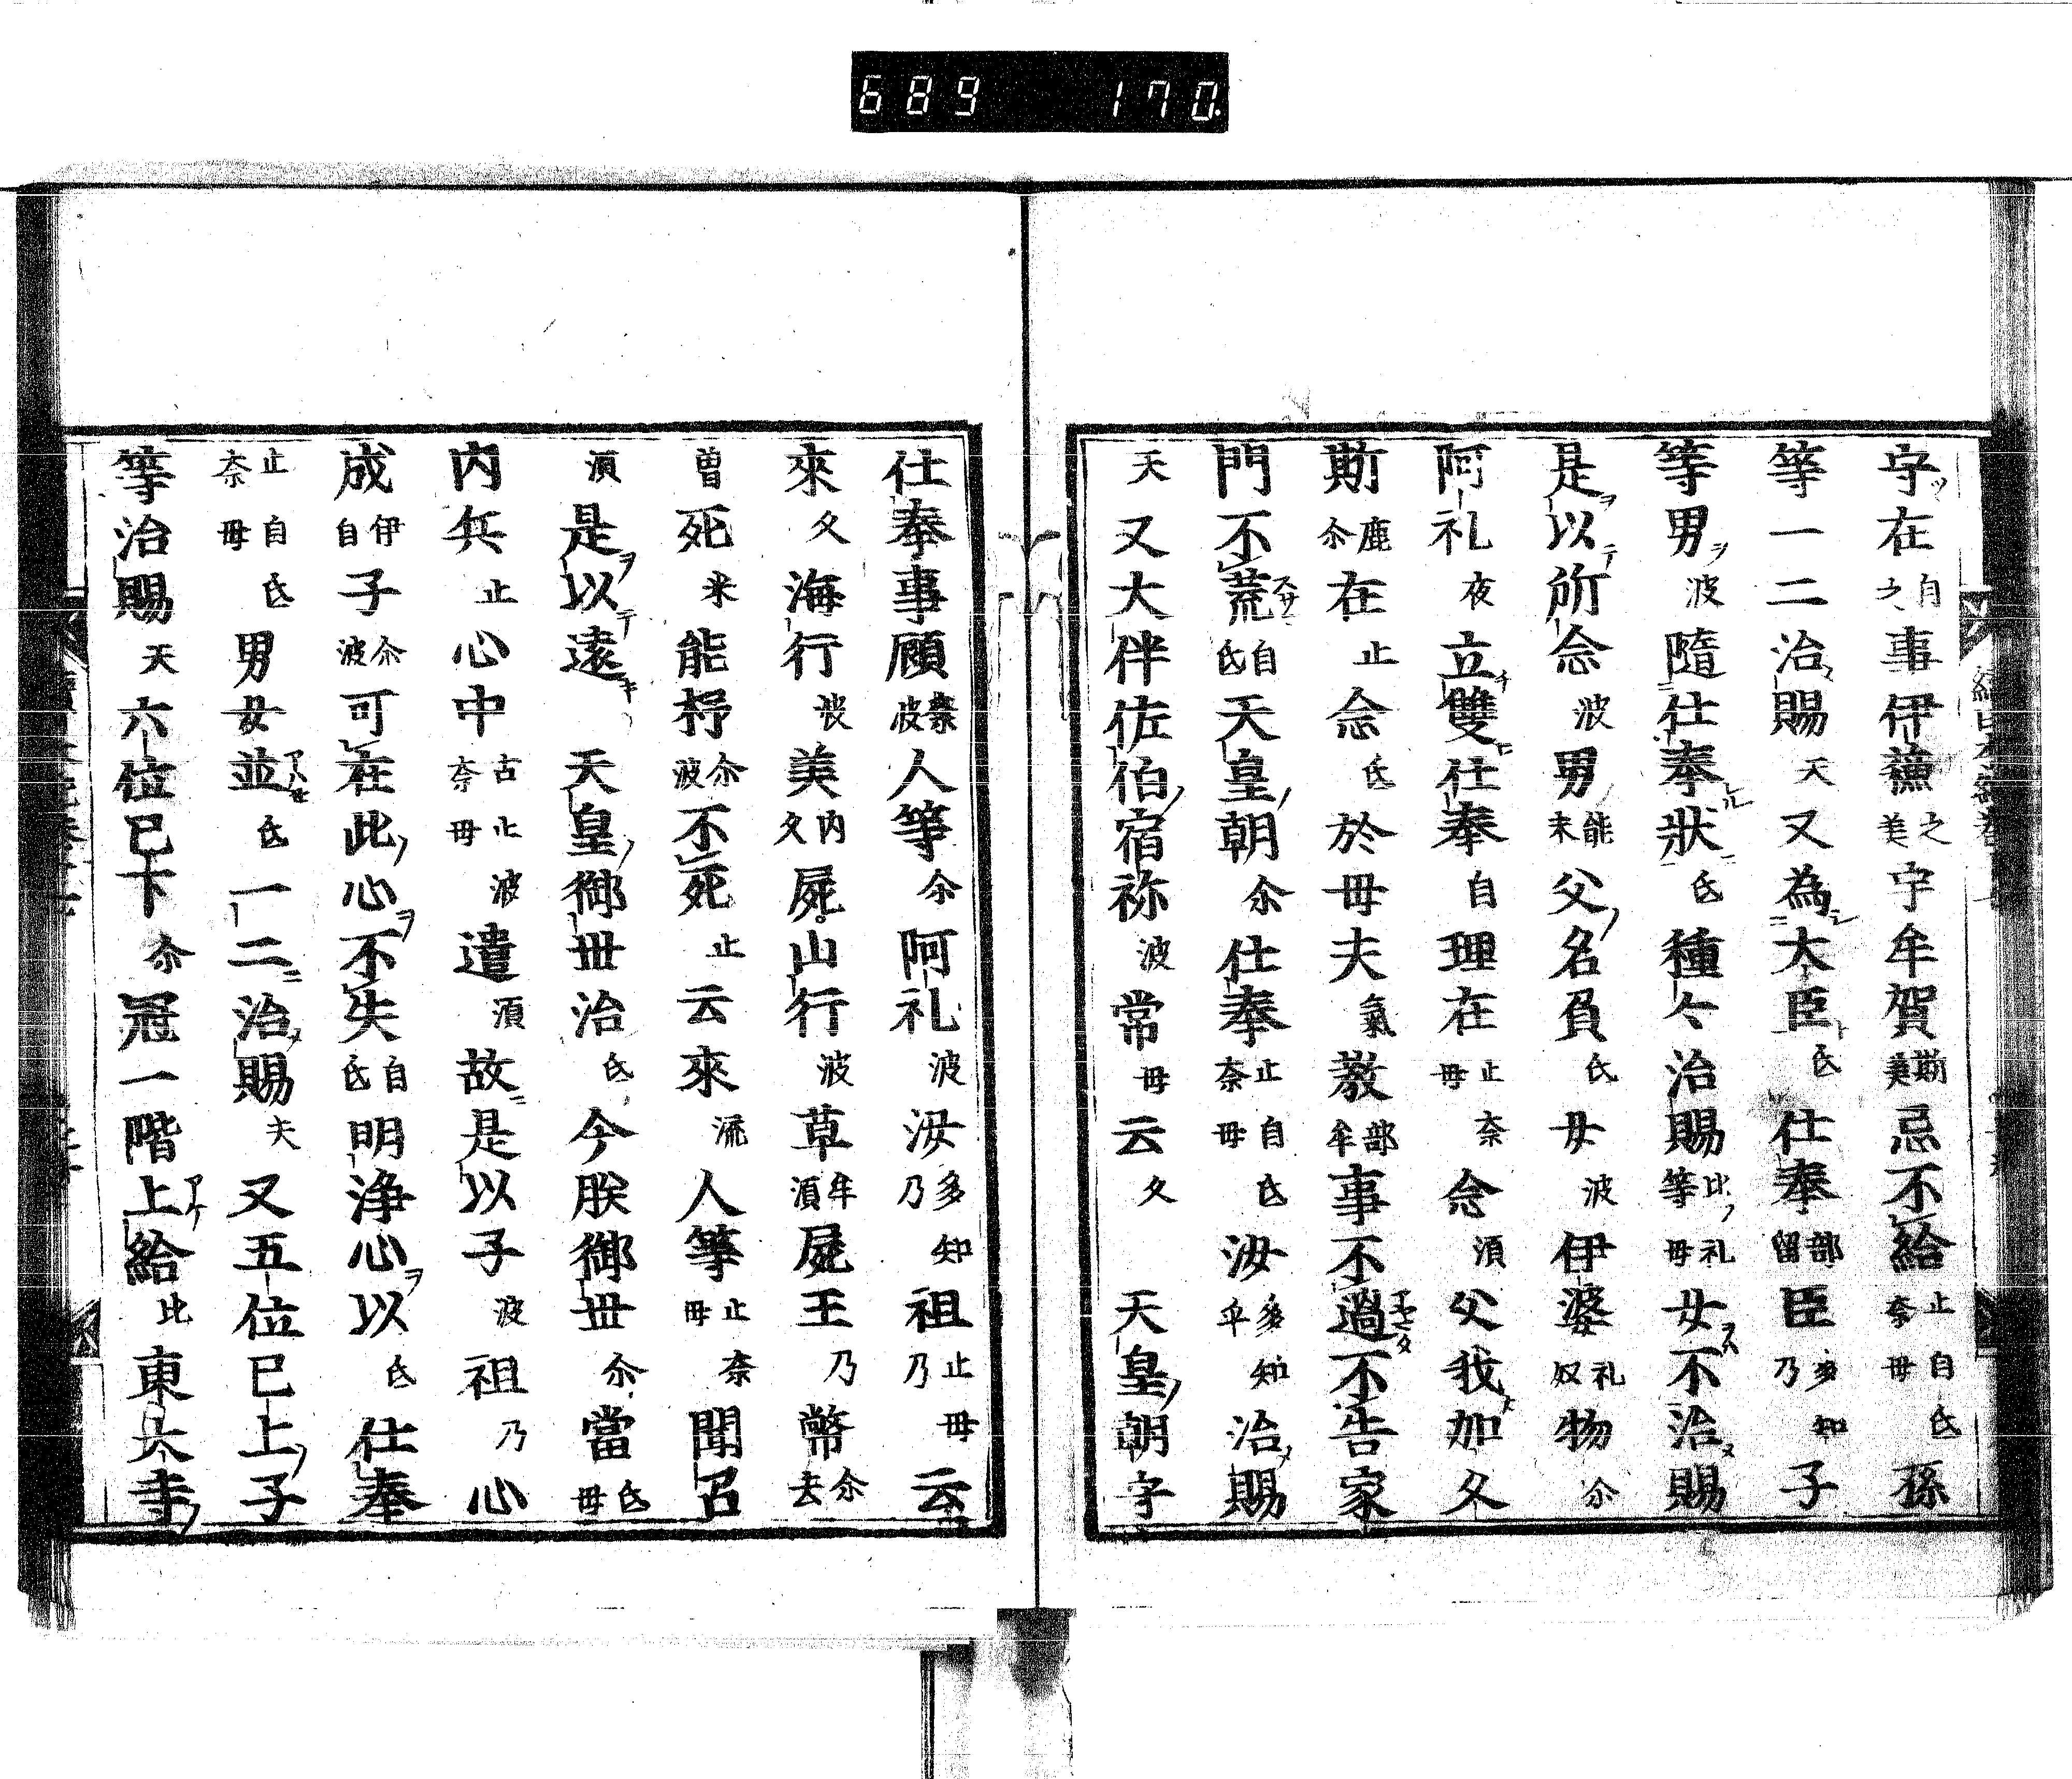 689 170
守在自之事伊蘓之美宇牟賀斯美忌不給止自氐奈母孫
等一二治賜天又為大臣氐仕奉部留臣多知乃子
等男波隨仕奉狀氐種々治賜比礼等母女不治賜
是以所念波男能未父名負氐女波伊婆礼奴物尒
阿礼夜立雙仕奉自理在止奈母念須父我加久
斯鹿尒在止念氐於母夫氣教部牟事不過不告家
門不荒自氐天皇朝尒仕奉止自氐奈母汝多知乎治賜
天又大伴佐伯宿祢波常母云久天皇朝守
仕奉事顧奈波人等尒阿礼波汝多知乃祖止母乃云
來久海行波美内久屍山行波草牟須屍王乃幣尒去
曽死米能杼尒波不死止云來流人等止奈母聞召
須是以遠天皇御世治氐今朕御世尒當氐母
内兵止心中古止波奈母遣須故是以子波祖乃心
成伊自子尒波可在此心不失自氐明浄心以氐仕奉
止自氐奈母男女並氐一二治賜夫又五位已上子
等治賜天六位已下尒冠一階上給比東大寺